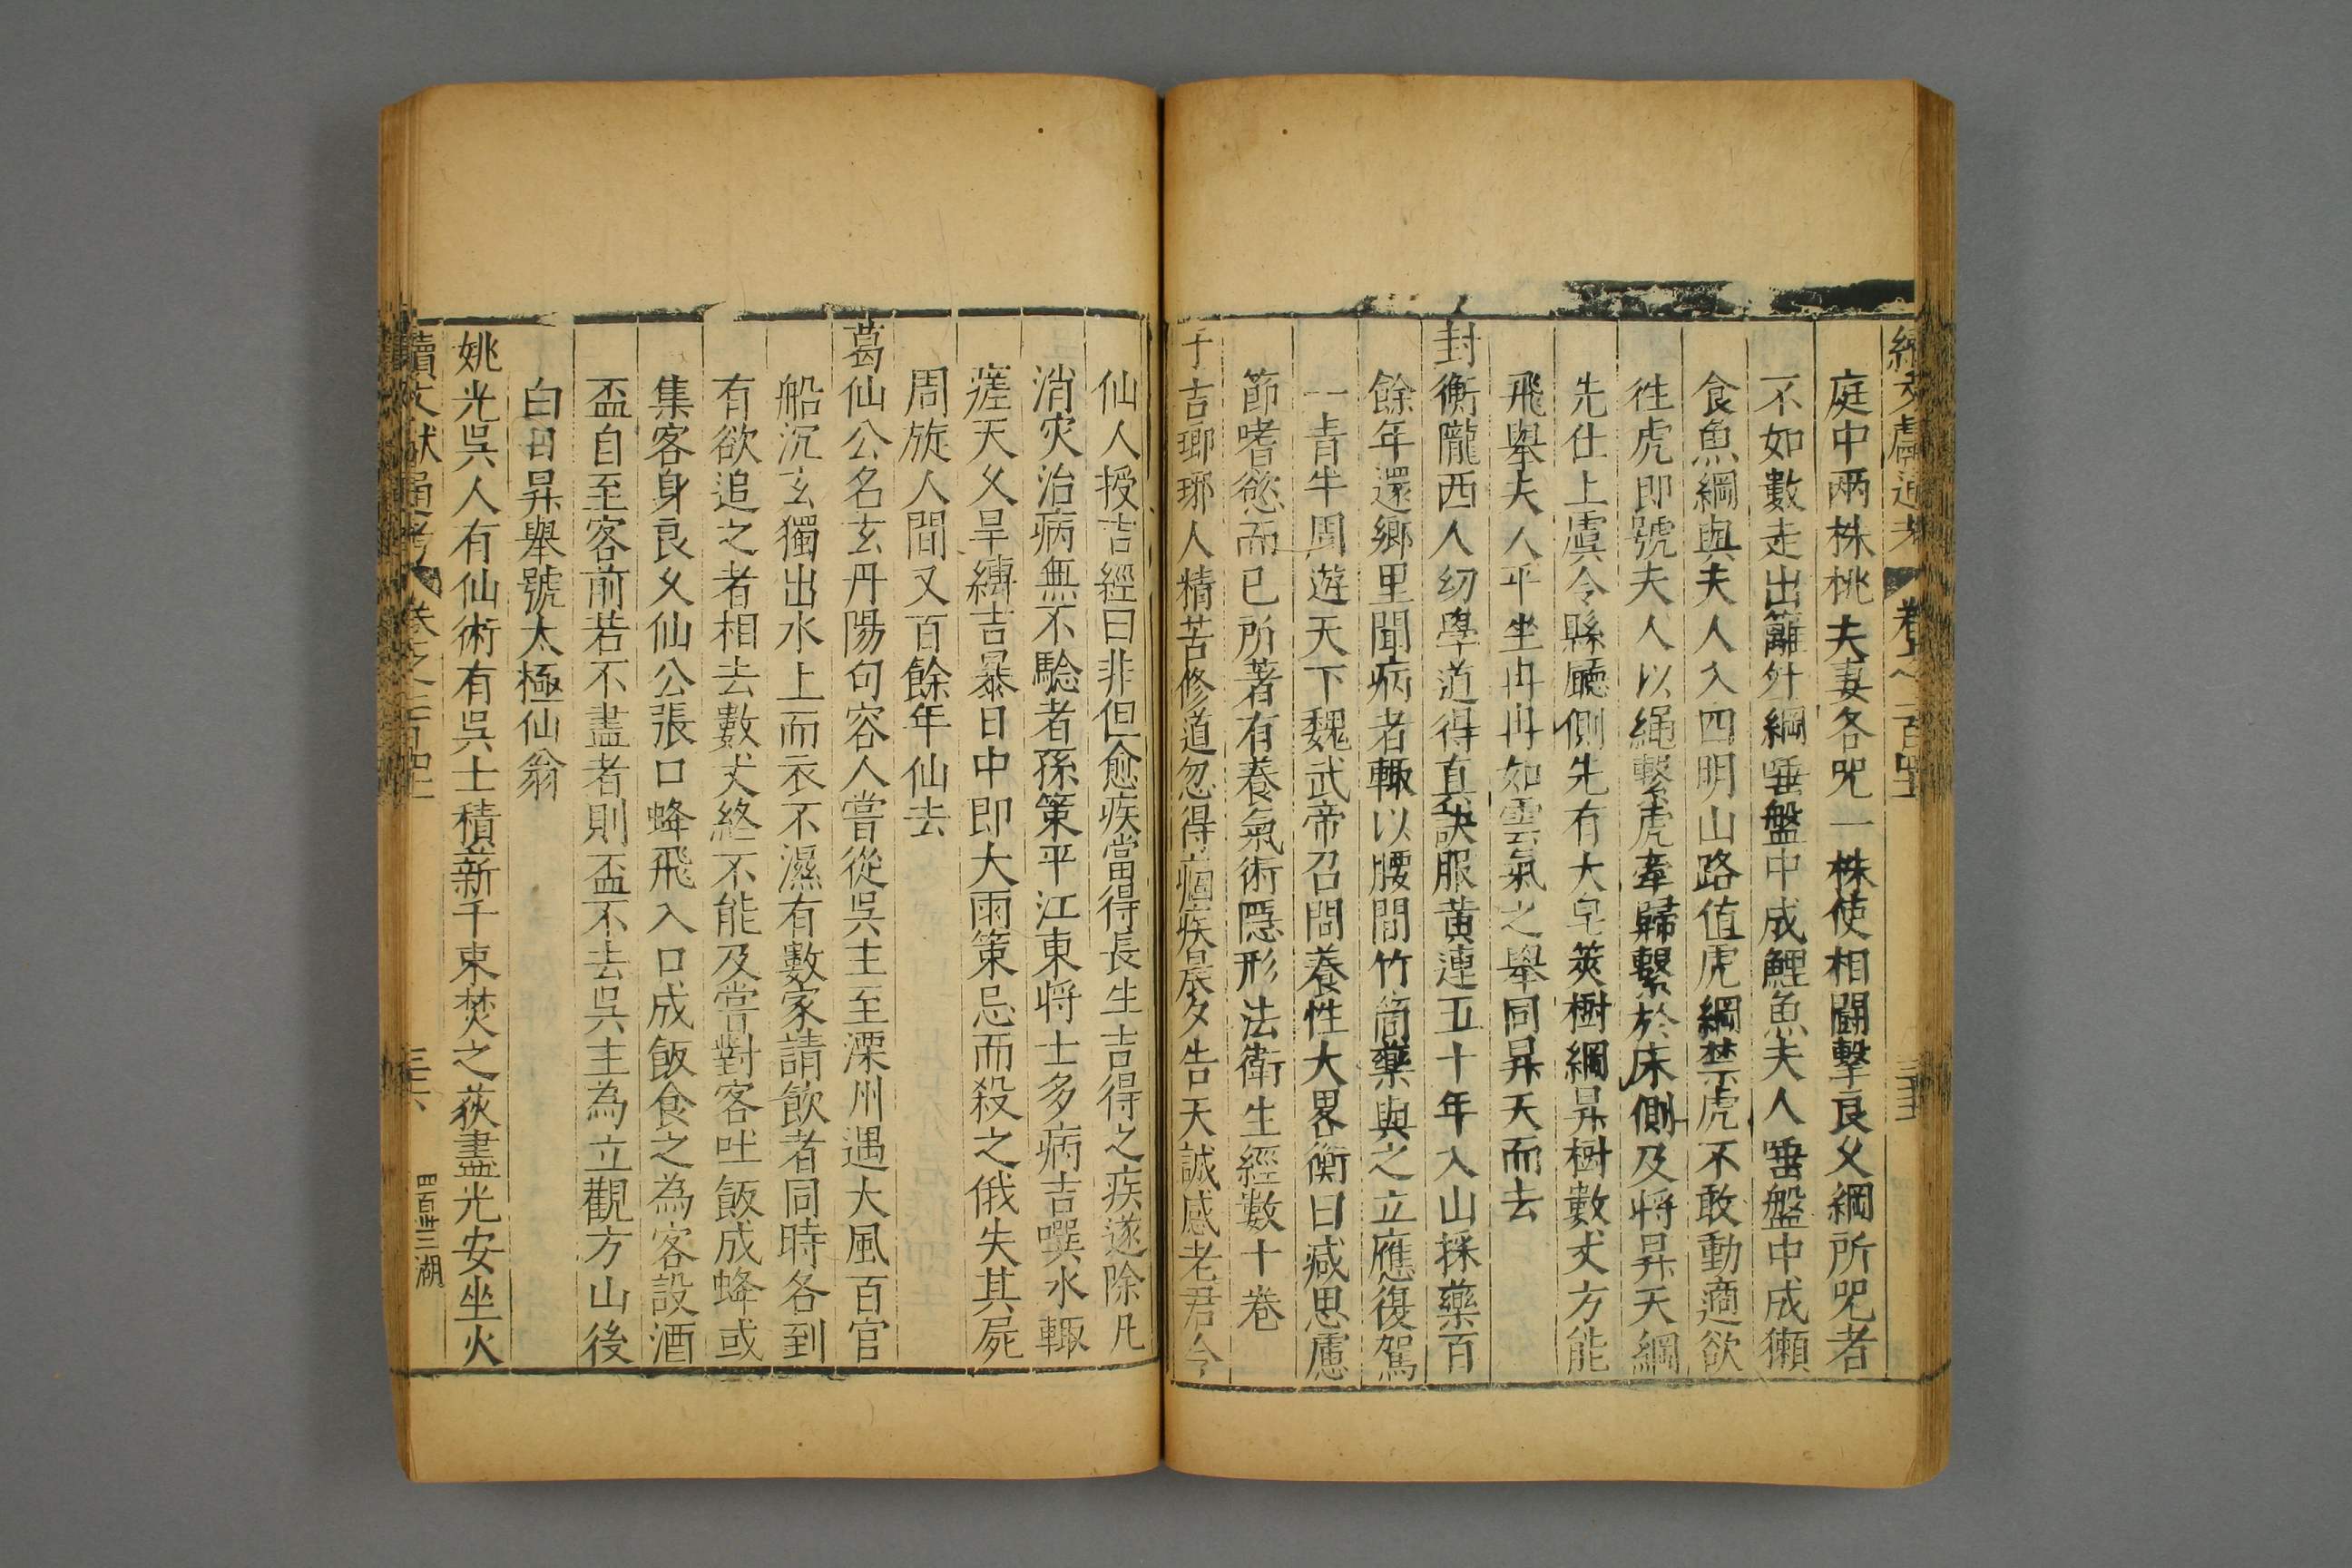 續文獻通考 卷之二百四十 三十五
庭中兩株桃夫妻各咒一株使相鬭擊良久綱所咒者
不如數走出籬外綱唾盤中成鯉魚夫人唾盤中成獺
食魚綱與夫人入四明山路值虎綱禁虎不敢動適欲
徃虎即號夫人以繩繫虎牽歸繫於床側及将昇天綱
先仕上虞令縣廳側先有大皂莢樹綱昇樹數丈方能
飛舉夫人平坐冉冉如雲氣之舉同昇天而去
封衡隴西人幼學道得真訣服黄連五十年入山採藥百
餘年還鄉里聞病者輙以腰間竹筒藥與之立應復駕
一青牛周遊天下魏武帝召問養性大畧衡曰减思慮
節嗜慾而已所著有養氣術隱形法衛生經數十卷
于吉瑯琊人精苦修道忽得痼疾晨夕告天誠感老君令
仙人授吉經曰非但愈疾當得長生吉得之疾遂除凡
消灾治病無不騐者孫策平江東将士多病吉噀水輙
瘥天久旱縛吉暴日中即大雨策忌而殺之俄失其屍
周旋人間又百餘年仙去
葛仙公名玄丹陽句容人嘗從吳主至溧州遇大風百官
船沉玄獨出水上而衣不濕有數家請飲者同時各到
有欲追之者相去數丈終不能及嘗對客吐飯成蜂或
集客身良久仙公張口蜂飛入口成飯食之為客設酒
盃自至客前若不盡者則盃不去吳主為立觀方山後
白日昇舉號太極仙翁
姚光吳人有仙術有吳士積薪千束焚之荻盡光安坐火
續文獻通考 卷之二百四十 三十六 四百卅三 湖